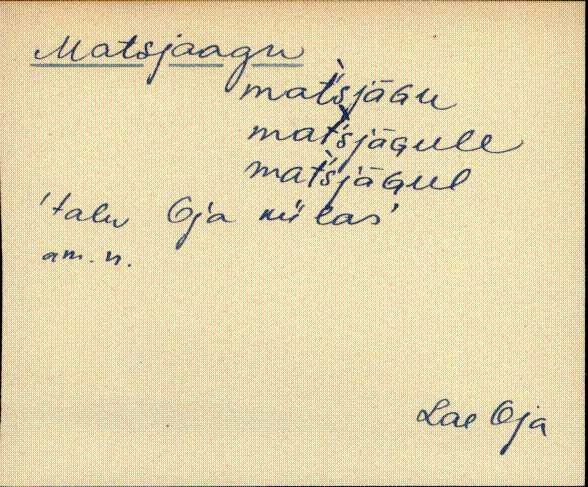 Matsjaagu
mat̀'śjāGu
mat̀'śjāGulle
mat̀'śjāGul
'talu Oja külas'
am. n.
Lae Oja